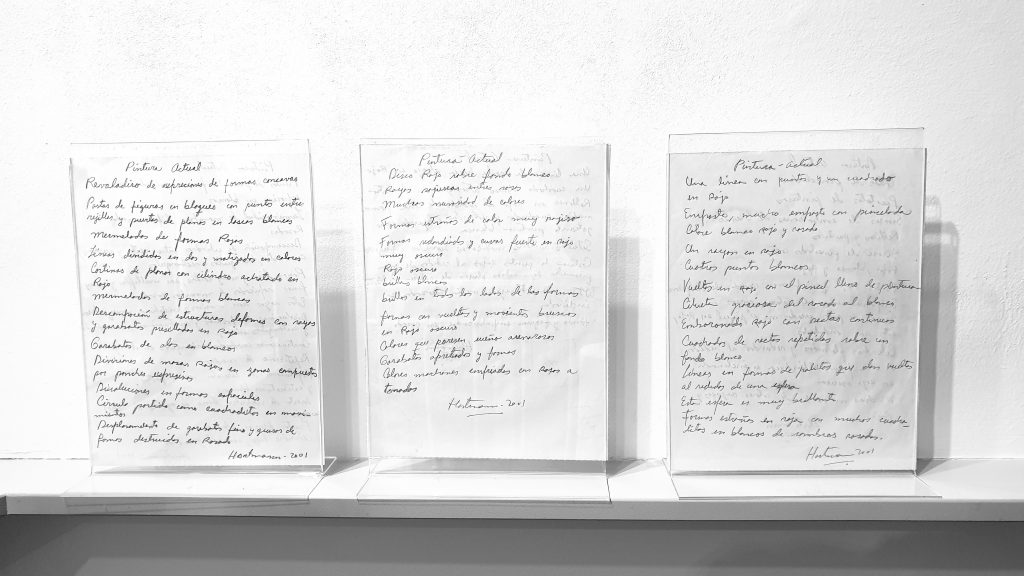 Pintura Actual
Resvaladero de expresiones de formas concavas
Partes de figuras en bloques con punto entre
rejillas y puertas de planos en lacas blancas
Mermeladas de formas Rojas
Líneas divididas en dos y matizadas en colores
Cortinas de planos con cilindro achatado en
Rojo
Mermeladas de formas blancas
Descomposición de estructuras deformes con rayas
y garabatos en Rojo
Garabatos de alas en blancos
Divisiones de masas Rojas en zonas
por
en formas espaciales
Círculo partido como cuadraditos en movi-
mientos
Desplazamiento de garabatos fino y grueso de
formas destruidas en Rosado
Hartmann - 2001
Pintura Actual
Disco Rojo sobre fondo blanco
Rayas rojuscas entre rosas
Muchas variedad de colores
Formas extrañas de color muy rojizo
Formas redondeadas y curvas fuerte en Rojo
muy oscuro
Rojo oscuro
brillos blancos
brillos en todos los lados de las formas
formas con vueltas y movimientos bruscos
en Rojo oscuro
Colores que parecen sueño
Garabatos apretados y formas
Colores marrones en Rosas a
tonadas
Hartmann - 2001
Pintura - Actual
Una línea con puntos y un cuadrado
en Rojo
Empaste, mucho empaste con pincelada
Color blanco rojo y rosado
Un rayon en rojo
Cuatros puntos blancos
Vueltas en rojo con el pincel lleno de pintura
Silueta graciosa del rosado al blanco
Emborronado Rojo con rectas continuas
Cuadrados de rectas repetidas sobre un
fondo blanco
Líneas en formas de palitos que dan vueltas
al rededor de una esfera
Esta esfera es muy brillante
Formas extrañas en rojo con muchos cuadra-
ditos en blancos de sombras rosadas.
Hartmann 2001